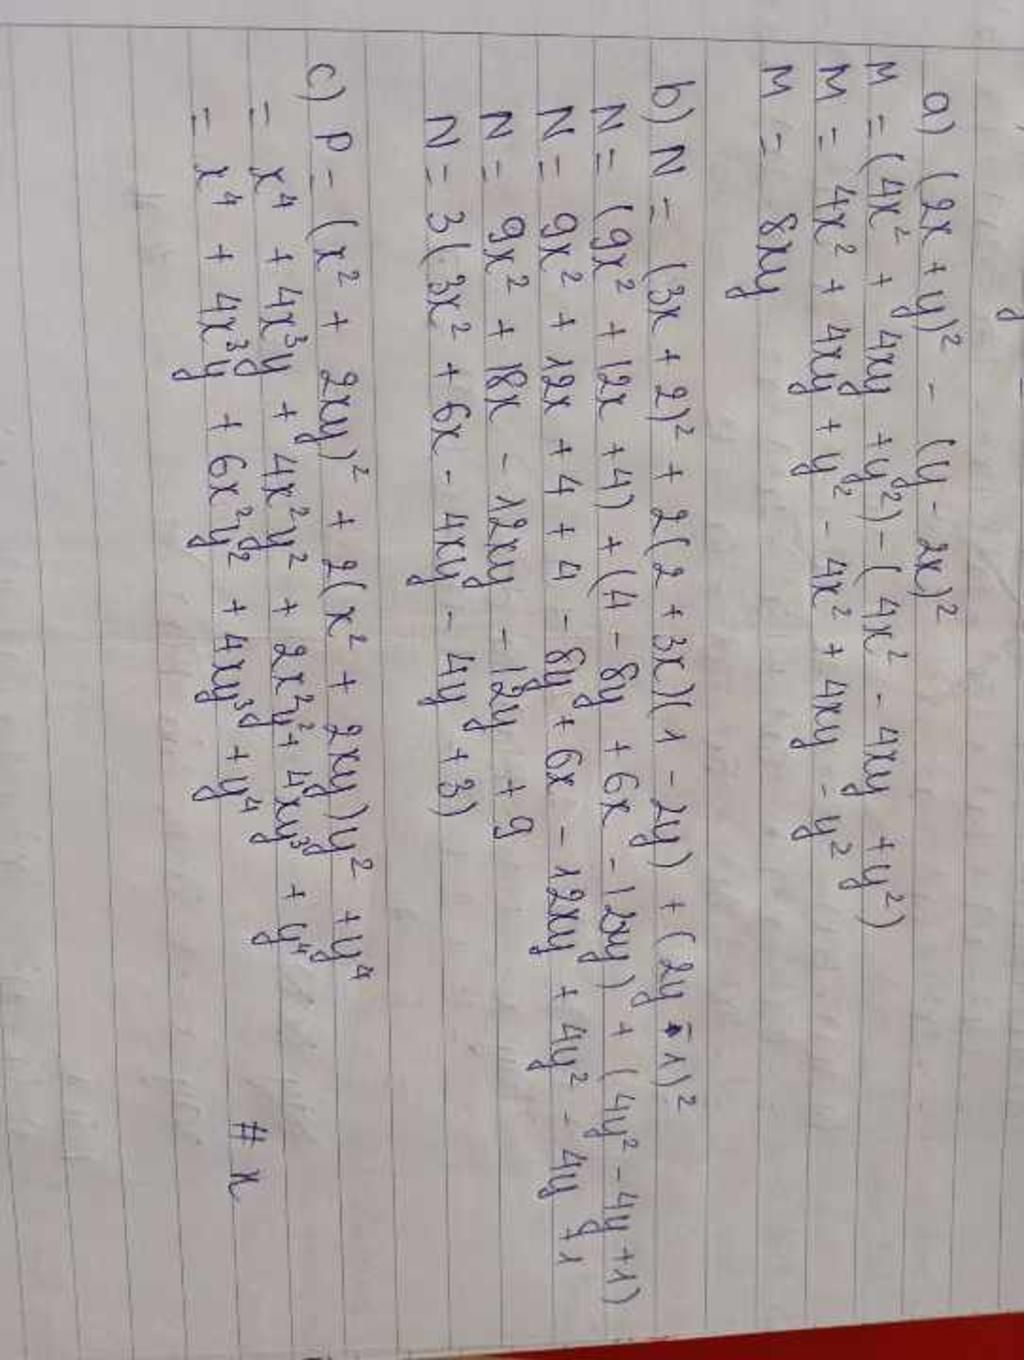 a) (2x + y)² - (y - 2x)²
M = (4x² + 4xy + y²) - (4x² - 4xy + y²)
M = 4x² + 4xy + y² - 4x² + 4xy - y²
M = 8xy
b) N = (3x + 2)² + 2(2 + 3x)(1 - 2y) + (2y - 1)²
N = (9x² + 12x + 4) + (4 - 8y + 6x - 12xy) + (4y² - 4y + 1)
N = 9x² + 12x + 4 + 4 - 8y + 6x - 12xy + 4y² - 4y + 1
N = 9x² + 18x - 12xy - 12y + 9
N = 3(3x² + 6x - 4xy - 4y + 3)
c) P = (x² + 2xy)² + 2(x² + 2xy)y² + y⁴
= x⁴ + 4x³y + 4x²y² + 2x²y² + 4xy³ + y⁴
= x⁴ + 4x³y + 6x²y² + 4xy³ + y⁴
# x